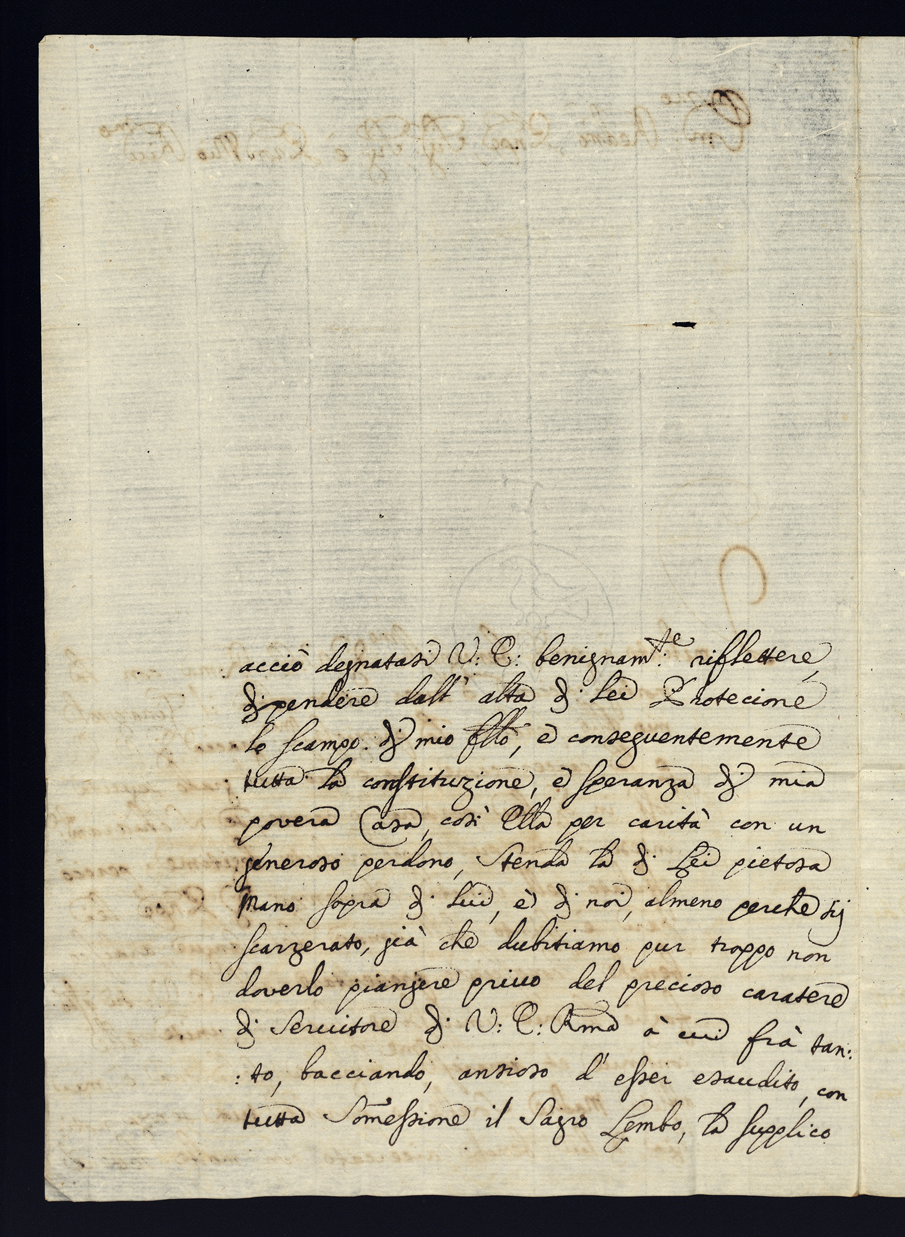 acciò degnatasi V: E: benignam:te riflettere,
dipendere dall' alta di Lei Protecione
lo scampo di mio fllõ, è conseguentemente
tutta la constituzione, è speranza di mia
povera Casa, così Ella per carità con un
generoso perdono, stenda la di Lei pietosa
Mano sopra di lui, è di noi, almeno perche sij
scarzerato, già che dubitiamo pur troppo non
doverlo piangere privo del precioso caratere
di Servitore di V: E: Rma à cui frà tan:
:to, bacciando, ansioso d' esser esaudito, con
tutta Som̃essione il Sagro Lembo, la supplico